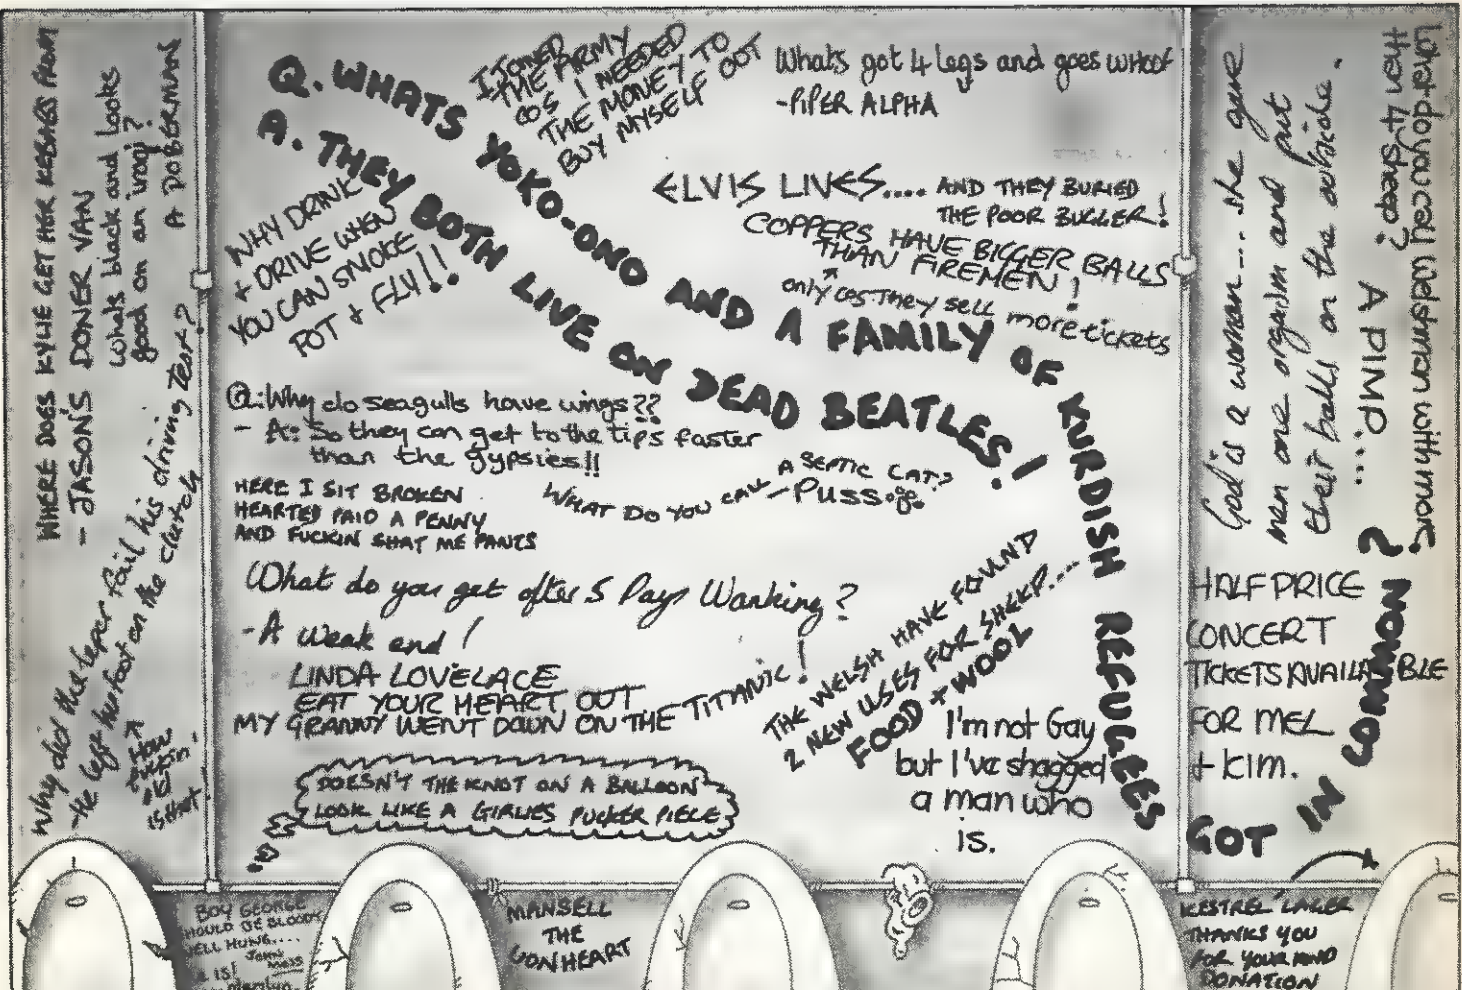 WHERE DOES KYLIE GET HER KEBABS FROM
- JASON'S DONER VAN
whats black and looks
good on an iraqi?
A DOBERMAN
Why did the leper fail his driving test?
-He left his foot on the clutch
Q. WHATS YOKO-ONO AND A FAMILY OF KURDISH REFUGEES GOT IN COMMON?
A. THEY BOTH LIVE ON DEAD BEATLES!
I JOINED
THE ARMY
COS I NEEDED
THE MONEY TO
BUY MYSELF OUT
Whats got 4 legs and goes WHOOF
-PIPER ALPHA
WHY DRINK
+ DRIVE WHEN
YOU CAN SMOKE
POT + FLY!!
ELVIS LIVES.... AND THEY BURIED
THE POOR BUGGER!
COPPERS HAVE BIGGER BALLS
THAN FIREMEN!
only cos they sell more tickets
Q:Why do seagulls have wings??
- A: So they can get to the tips faster
than the gypsies!!
HERE I SIT BROKEN
HEARTED PAID A PENNY
AND FUCKIN SHAT ME PANTS
WHAT DO YOU CALL A SEPTIC CAT?
-Puss
What do you get after 5 Days Wanking?
-A weak end!
LINDA LOVELACE
EAT YOUR HEART OUT
MY GRANNY WENT DOWN ON THE TITANIC!
THE WELSH HAVE FOUND
2 NEW USES FOR SHEEP....
FOOD + WOOL
I'm not Gay
but I've shagged
a man who
is.
DOESN'T THE KNOT ON A BALLOON
LOOK LIKE A GIRLIES PUCKER PIECE
What do you call a Welshman with more
then 4 sheep?
A PIMP....
God is a woman... she gave
men one orgasm and put
their balls on the outside.
HALF PRICE
CONCERT
TICKETS AVAILABLE
FOR MEL
+ KIM.
BOY GEORGE
SHOULD BE BLOODY
WELL HUNG....
MANSELL
THE
LIONHEART
KESTREL LAGER
THANKS YOU
FOR YOUR KIND
DONATION